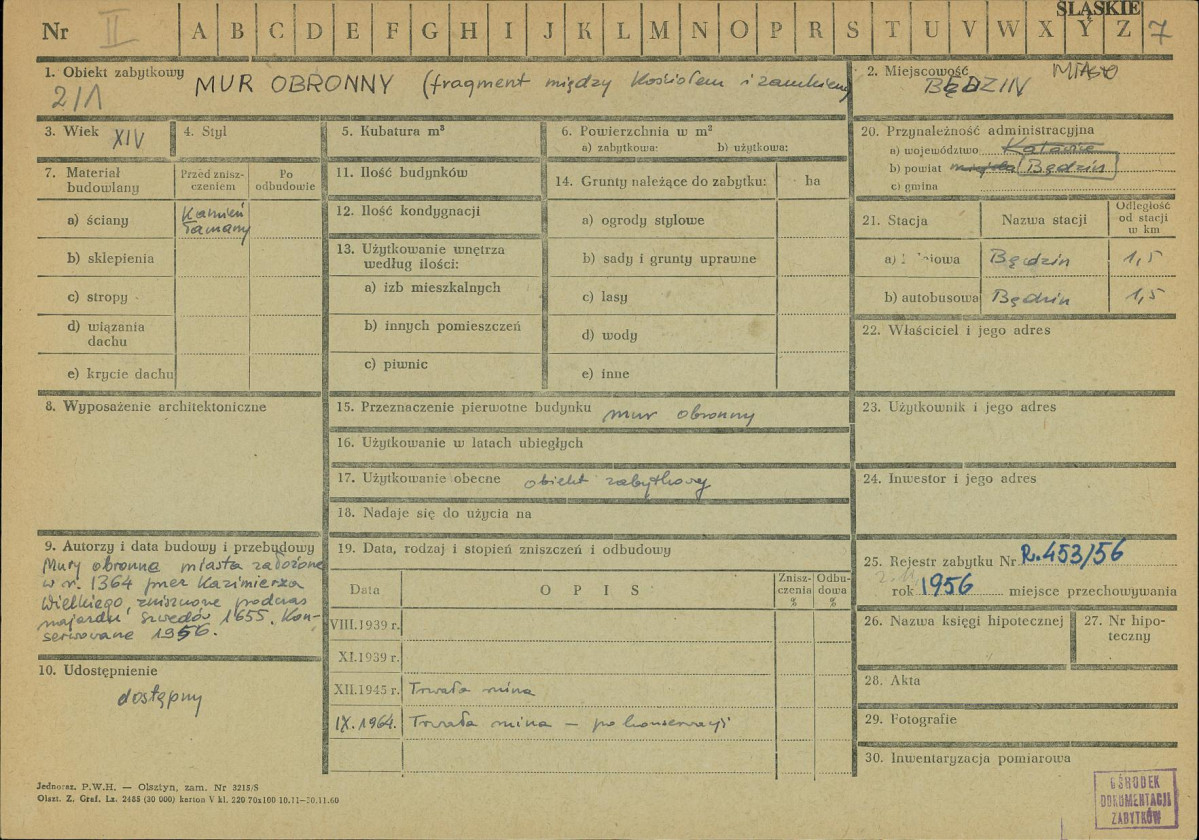 ŚLĄSKIE
Nr II A B C D E F G H I J K L M N O P R S T U V W X Y Z 7
1. Obiekt zabytkowy MUR OBRONNY (fragment między Kościołem i zamkiem)
2/1
2. Miejscowość MIASTO
BĘDZIN
3. Wiek XIV
4. Styl
5. Kubatura m³
6. Powierzchnia w m²
a) zabytkowa: b) użytkowa:
20. Przynależność administracyjna
a) województwo Katowice
b) powiat Będzin
c) gmina
7. Materiał
budowlany
Przed znisz-
czeniem
Po
odbudowie
a) ściany Kamień
łamany
b) sklepienia
c) stropy
d) wiązania
dachu
e) krycie dachu
11. Ilość budynków
12. Ilość kondygnacji
13. Użytkowanie wnętrza
według ilości:
a) izb mieszkalnych
b) innych pomieszczeń
c) piwnic
14. Grunty należące do zabytku: ha
a) ogrody stylowe
b) sady i grunty uprawne
c) lasy
d) wody
e) inne
21. Stacja Nazwa stacji Odległość
od stacji
w km
a) Będzin 1,5
b) autobusowa Będzin 1,5
22. Właściciel i jego adres
8. Wyposażenie architektoniczne
15. Przeznaczenie pierwotne budynku mur obronny
16. Użytkowanie w latach ubiegłych
17. Użytkowanie obecne obiekt zabytkowy
18. Nadaje się do użycia na
23. Użytkownik i jego adres
24. Inwestor i jego adres
9. Autorzy i data budowy i przebudowy
Mury obronne miasta założone
w r. 1364 przez Kazimierza
Wielkiego, zniszczone podczas
najazdu Szwedów 1655. Kon-
serwowane 1956.
10. Udostępnienie
dostępny
19. Data, rodzaj i stopień zniszczeń i odbudowy
Data OPIS Znisz-
czenia
%
Odbu-
dowa
%
VIII.1939 r.
XI.1939 r.
XII.1945 r. Trwała ruina
IX.1964. Trwała ruina – po konserwacji
25. Rejestr zabytku Nr R.453/56
rok 1956 miejsce przechowywania
26. Nazwa księgi hipotecznej
27. Nr hipo-
teczny
28. Akta
29. Fotografie
30. Inwentaryzacja pomiarowa
Jednoraz. P.W.H. — Olsztyn, zam. Nr 3215/S
Olszt. Z. Graf. Lz. 2485 (30 000) karton V kl. 220 70x100 10.11–30.11.60
OŚRODEK
DOKUMENTACJI
ZABYTKÓW